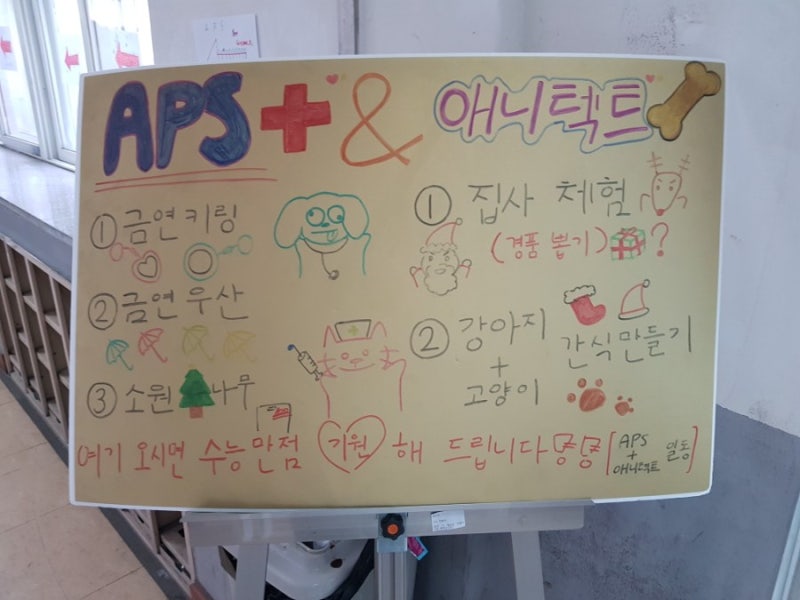 APS + & 애니텍트
① 금연키링
② 금연우산
③ 소원 나무
① 집사 체험
(경품 뽑기) ?
② 강아지 + 고양이 간식만들기
여기 오시면 수능만점 기원 해 드립니다
[APS + 애니텍트 일동]